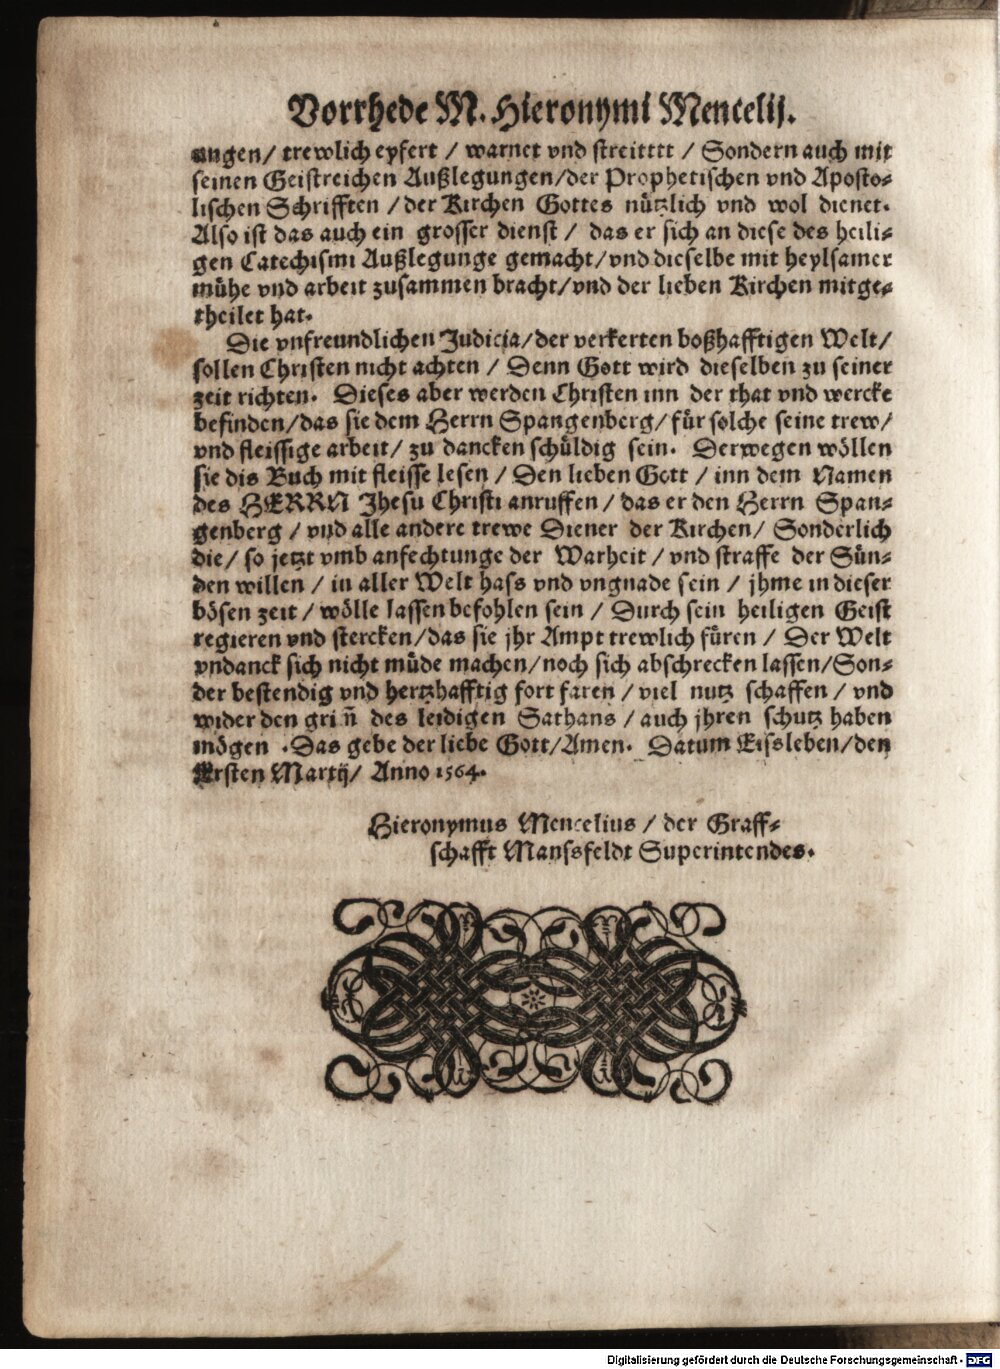 Vorrhede M. Hieronymi Mencelij.
ungen/ trewlich eyfert / warnet vnd streitttt / Sondern auch mit
seinen Geistreichen Außlegungen/der Prophetischen vnd Aposto-
lischen Schrifften /der Kirchen Gottes nützlich vnd wol dienet.
Also ist das auch ein grosser dienst / das er sich an diese des heili-
gen Catechismi Außlegunge gemacht/vnd dieselbe mit heylsamer
mühe vnd arbeit zusammen bracht/vnd der lieben Kirchen mitge-
theilet hat.
Die vnfreundlichen Judicia/der verkerten boßhafftigen Welt/
sollen Christen nicht achten / Denn Gott wird dieselben zu seiner
zeit richten. Dieses aber werden Christen inn der that vnd wercke
befinden/das sie dem Herrn Spangenberg/für solche seine trew/
vnd fleissige arbeit/ zu dancken schüldig sein. Derwegen wöllen
sie dis Buch mit fleisse lesen / Den lieben Gott / inn dem Namen
des HERRN Jhesu Christi anruffen / das er den Herrn Span-
genberg / vnd alle andere trewe Diener der Kirchen/ Sonderlich
die/ so jetzt vmb anfechtunge der Warheit / vnd straffe der Sün-
den willen / in aller Welt hass vnd vngnade sein / jhme in dieser
bösen zeit / wölle lassen befohlen sein / Durch sein heiligen Geist
regieren vnd stercken/das sie jhr Ampt trewlich füren / Der Welt
vndanck sich nicht müde machen/noch sich abschrecken lassen/Son-
der bestendig vnd hertzhafftig fort faren / viel nutz schaffen / vnd
wider den des leidigen Sathans / auch jhren schutz haben
mögen .Das gebe der liebe Gott/Amen. Datum Eissleben/den
Ersten Martij/ Anno 1564.
Hieronymus Mencelius / der Graff-
schafft Mansfeldt Superintendes.
Digitalisierung gefördert durch die Deutsche Forschungsgemeinschaft - DFG